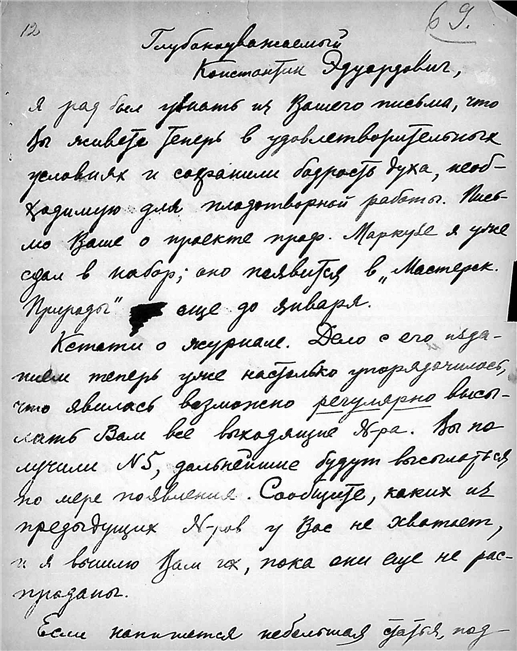 12
69.
Глубокоуважаемый
Константин Эдуардович,
я рад был узнать из Вашего письма, что
Вы живете теперь в удовлетворительных
условиях и сохранили бодрость духа, необ-
ходимую для плодотворной работы. Пись-
мо Ваше о проекте проф. Маркузе я уже
сдал в набор; оно появится в „Мастерск.
Природы" еще до января.
Кстати о журнале. Дело с его изда-
нием теперь уже настолько упорядочилось,
что явилась возможно регулярно высы-
лать Вам все выходящие №-ра. Вы по-
лучили №5, дальнейшие будут высылаться
по мере появления. Сообщите, каких из
предыдущих №-ров у Вас не хватает,
и я вышлю Вам их, пока они еще не рас-
проданы.
Если напишется небольшая статья, под-